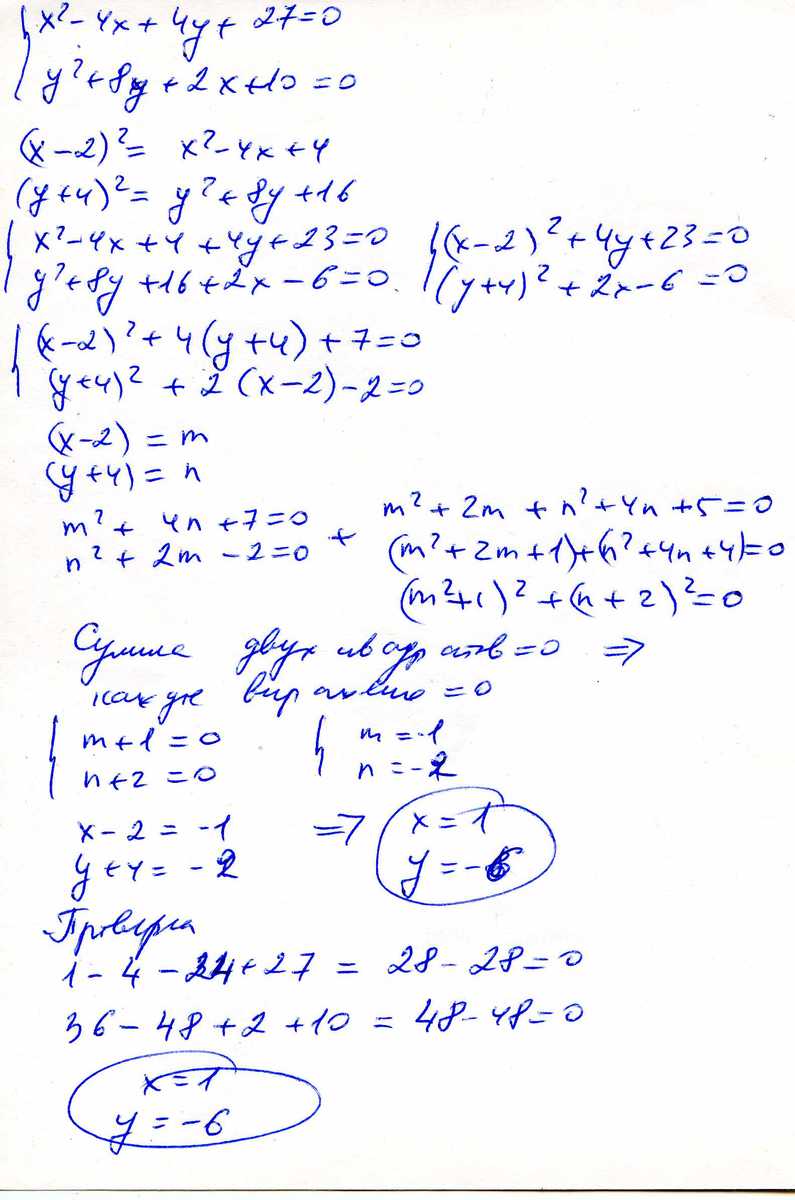 x² - 4x + 4y + 27 = 0
y² + 8y + 2x + 10 = 0
(x - 2)² = x² - 4x + 4
(y + 4)² = y² + 8y + 16
x² - 4x + 4 + 4y + 23 = 0 (x - 2)² + 4y + 23 = 0
y² + 8y + 16 + 2x - 6 = 0. (y + 4)² + 2x - 6 = 0
(x - 2)² + 4(y + 4) + 7 = 0
(y + 4)² + 2(x - 2) - 2 = 0
(x - 2) = m
(y + 4) = n
m² + 4n + 7 = 0
n² + 2m - 2 = 0 +
m² + 2m + n² + 4n + 5 = 0
(m² + 2m + 1) + (n² + 4n + 4) = 0
(m² + 1)² + (n + 2)² = 0
Сумма двух квадратов = 0 ⇒
каждое = 0
m + 1 = 0 m = -1
n + 2 = 0 n = -2
x - 2 = -1 ⇒ x = 1
y + 4 = -2 y = -6
Проверка
1 - 4 - 24 + 27 = 28 - 28 = 0
36 - 48 + 2 + 10 = 48 - 48 = 0
x = 1
y = -6